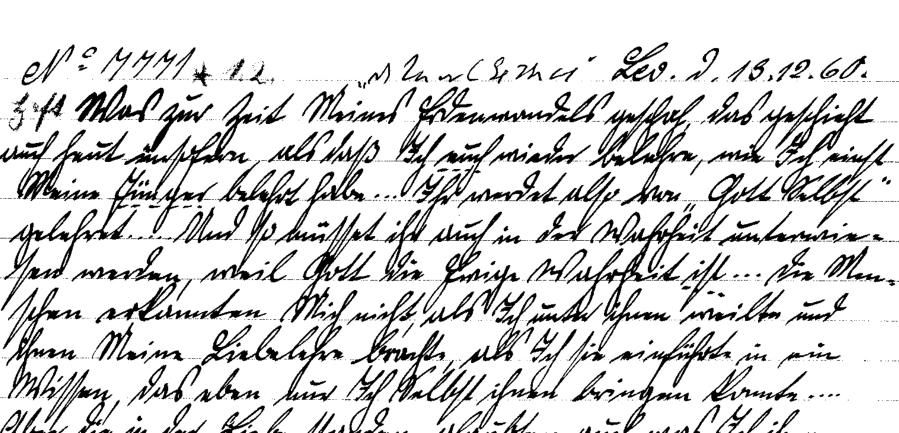 No 7771 12. Leo. d. 13.12.60.
Was zur Zeit Meines Erdenwandels geschah, das geschieht
auch heut insofern, als daß Ich euch wieder belehre, wie Ich einst
Meine Jünger belehrt habe... Ihr werdet also von „Gott Selbst"
gelehret... Und so müsset ihr auch in der Wahrheit unterwie=
sen werden, weil Gott die Ewige Wahrheit ist... Die Men-
schen erkannten Mich nicht, als Ich unter ihnen weilte und
ihnen Meine Liebelehre brachte, als Ich sie einführte in ein
Wissen, das eben nur Ich Selbst ihnen bringen konnte....
Aber die in der Liebe standen, glaubten auch was Ich